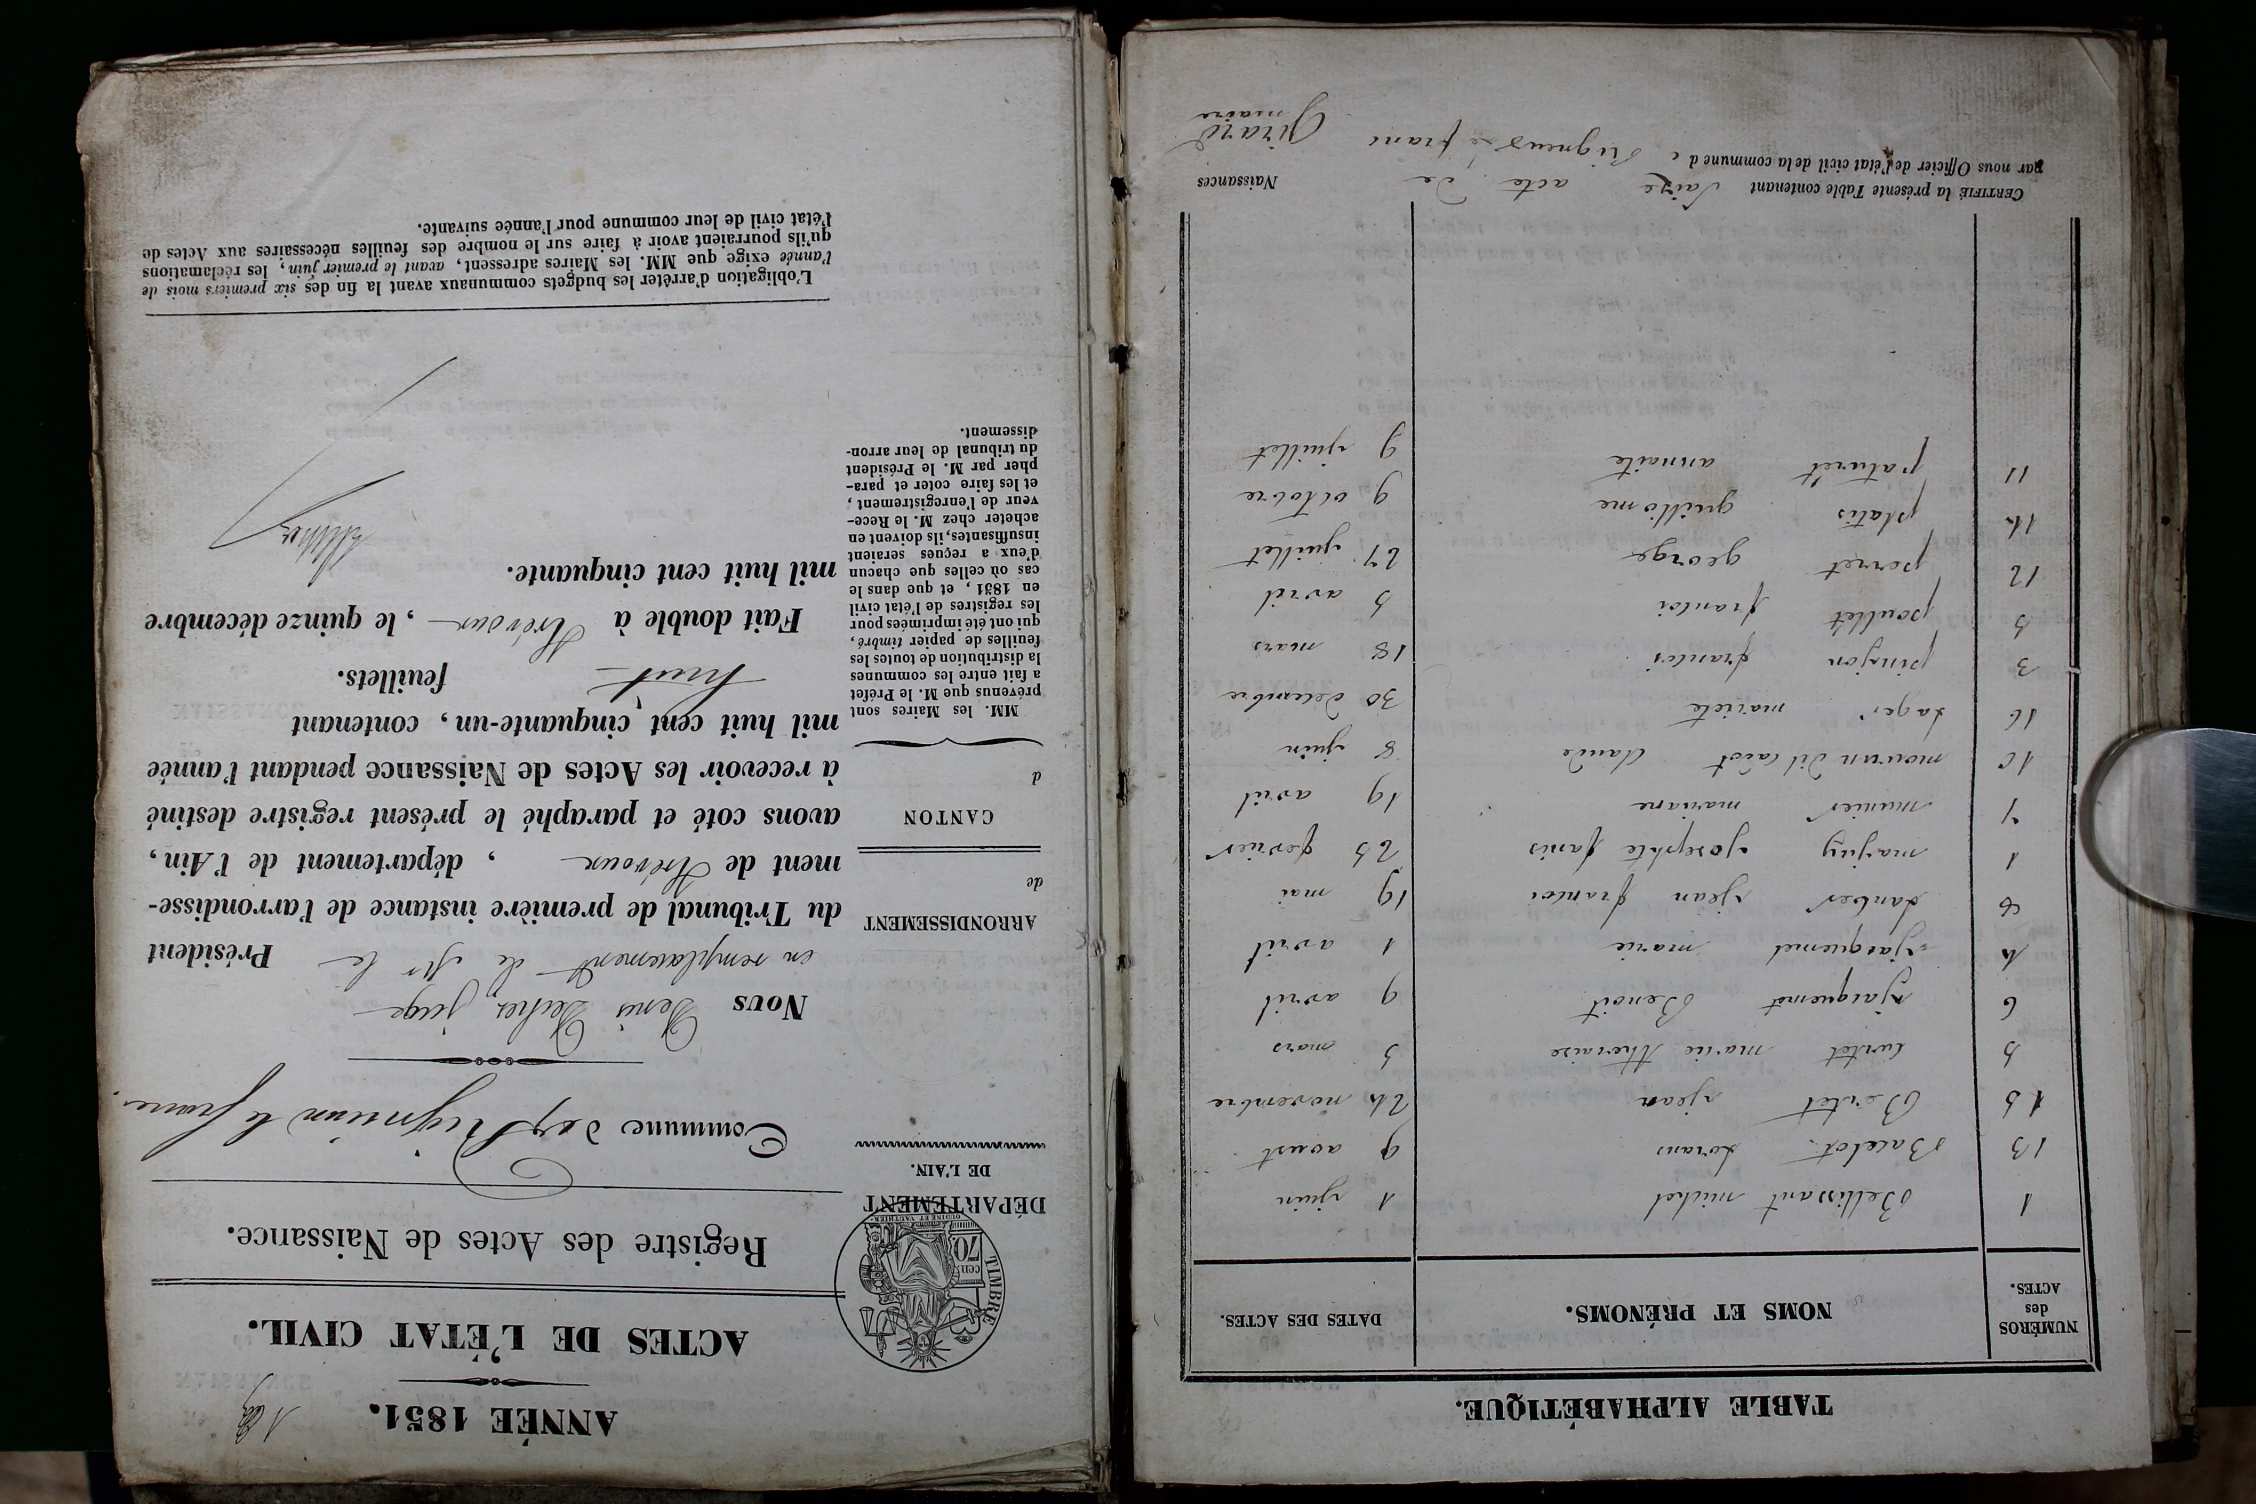 TABLE ALPHABÉTIQUE.
NUMÉROS des ACTES. NOMS ET PRÉNOMS. DATES DES ACTES.
1 Bellissant michel 1 juin
13 Bacelot Lorans 9 aoust
15 Bertet jean 24 novembre
5 Curtet marie theraise 5 mars
6 jacquemet Benoit 9 avril
4 jacquemet marie 1 avril
8 Lanber jean francoi 19 mai
1 marjuy josephte fanis 25 fevrier
7 munier mariane 19 avril
10 mourun dil Cacot claude 8 juin
16 Lager mariete 30 decembre
3 pinjon francoi 18 mars
5 poullet francoi 5 avril
12 perret george 27 juillet
14 platis guillome 9 octobre
11 paturet annaite 9 juillet
CERTIFIÉ la présente Table contenant Saize acte de Naissances
par nous Officier de l'état civil de la commune de Rigneux le franc Girard
maire
ANNÉE 1851.
ACTES DE L'ÉTAT CIVIL.
TIMBRE
70
cen
OUDINÉ ET VAUTHIER
Registre des Actes de Naissance.
DÉPARTEMENT
DE L'AIN.
Commune de Rignieux le franc.
Nous Denis Decher juge
en remplacement de Mr le Président
du Tribunal de première instance de l'arrondisse-
ment de Trévoux, département de l'Ain,
avons coté et paraphé le présent registre destiné
à recevoir les Actes de Naissance pendant l'année
mil huit cent cinquante-un, contenant
huit feuillets.
Fait double à Trévoux, le quinze décembre
mil huit cent cinquante.
ARRONDISSEMENT
de
CANTON
d
MM. les Maires sont
prévenus que M. le Préfet
a fait entre les communes
la distribution de toutes les
feuilles de papier timbré,
qui ont été imprimées pour
les registres de l'état civil
en 1851, et que dans le
cas où celles que chacun
d'eux a reçues seraient
insuffisantes, ils doivent en
acheter chez M. le Rece-
veur de l'enregistrement,
et les faire coter et para-
pher par M. le Président
du tribunal de leur arron-
dissement.
L'obligation d'arrêter les budgets communaux avant la fin des six premiers mois de
l'année exige que MM. les Maires adressent, avant le premier juin, les réclamations
qu'ils pourraient avoir à faire sur le nombre des feuilles nécessaires aux Actes de
l'état civil de leur commune pour l'année suivante.